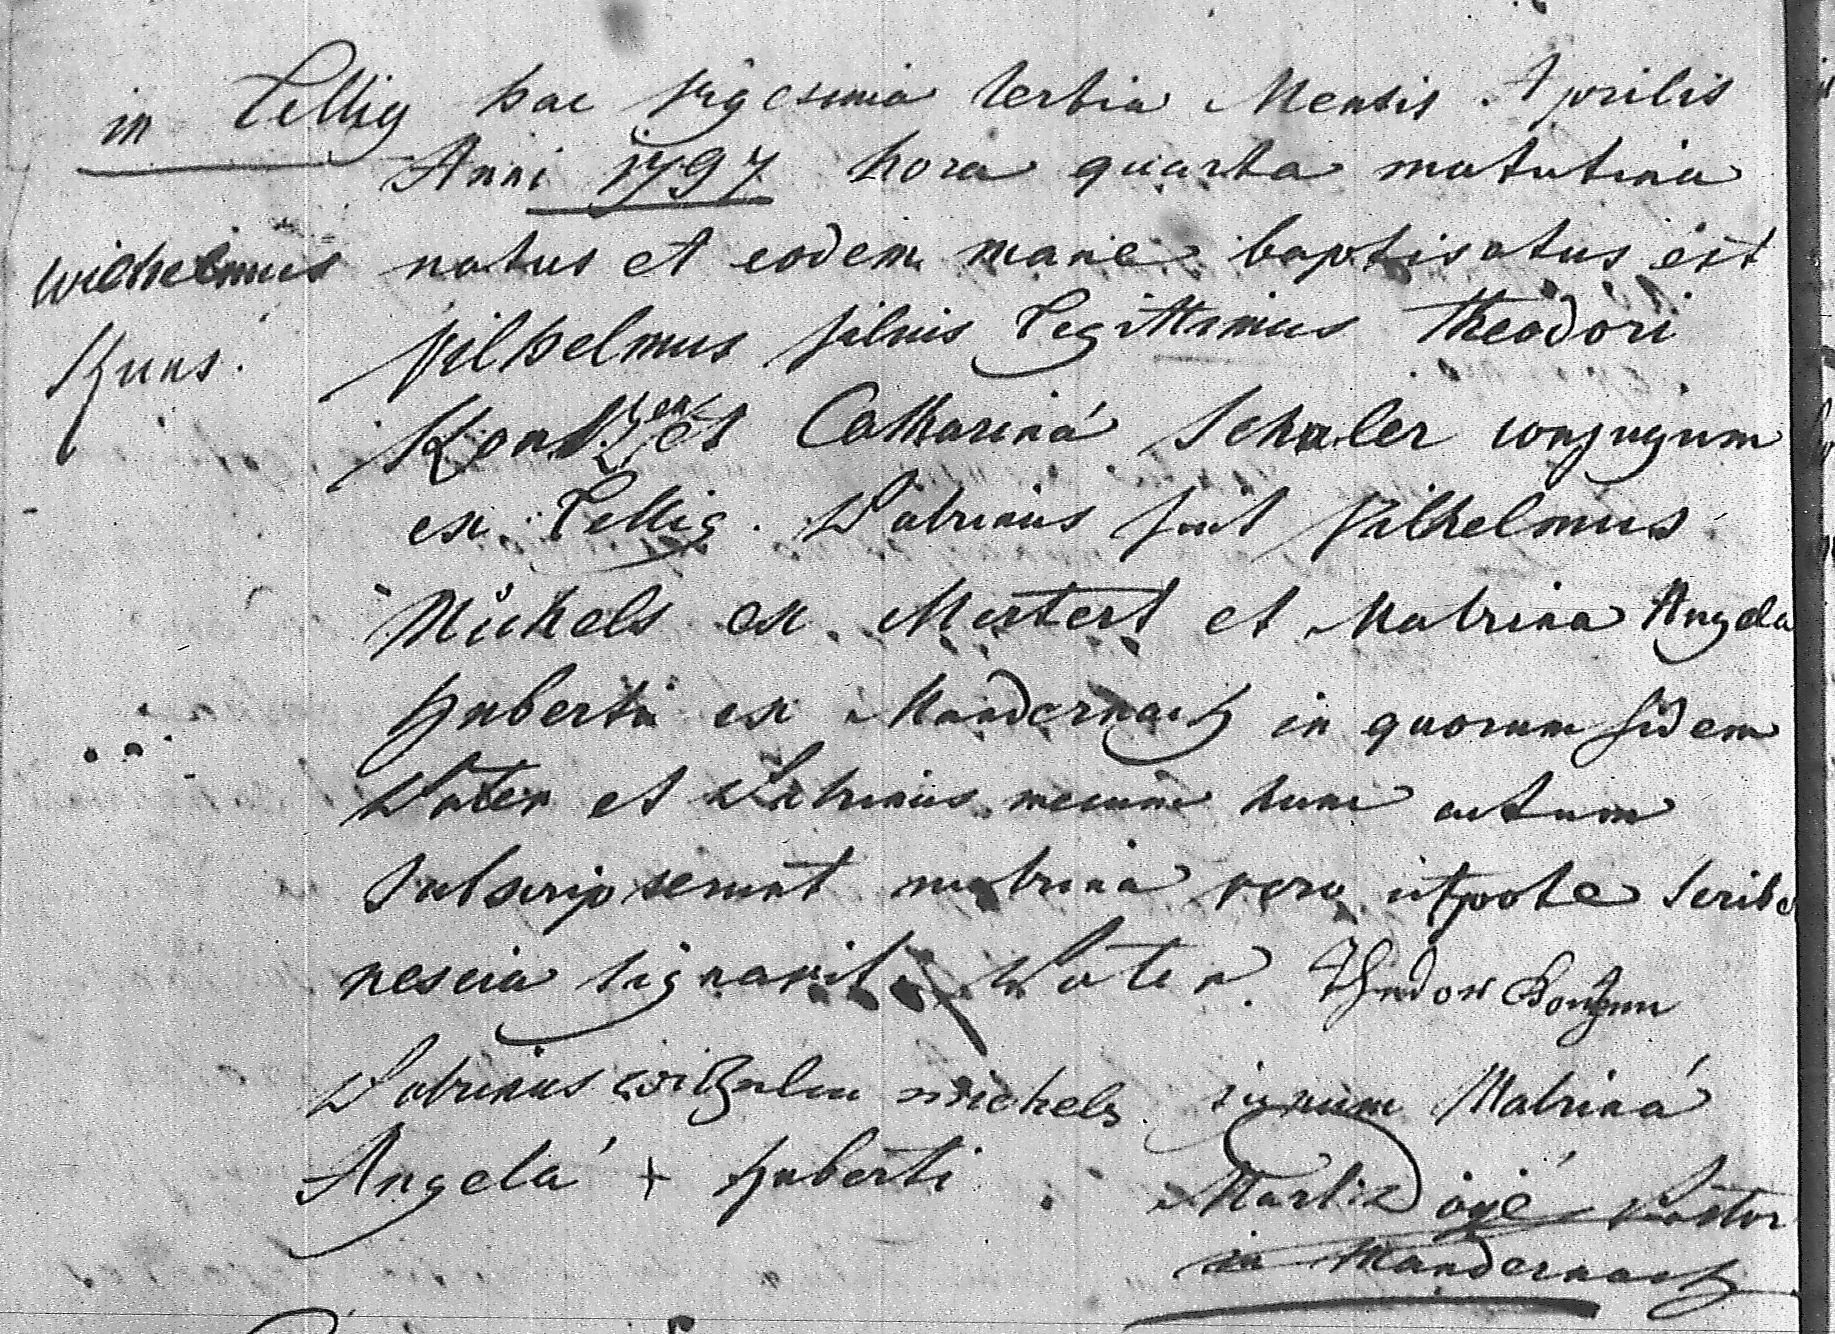 in Tellig hac vigesima tertia Mensis Aprilis
Anni 1797 hora quarta matutina
wilhelmus natus et eodem mane baptisatus est
Kuns. Vilhelmus filius Legittimus Theodori
et Catharina Schuler conjugum
ex Tellig. Patrinus fuit Vilhelmus
Michels ex Mertert et Matrina Angela
huberti ex Mandernach in quorum fidem
Pater et Patrinus mecum hunc actum
Subscripserunt matrina vero utpote scribe
nescia signavit. Pater. Theodor
Patrinus wilhelm michels. signum Matrina
Angela + huberti Martin Pastor
in Mandernach